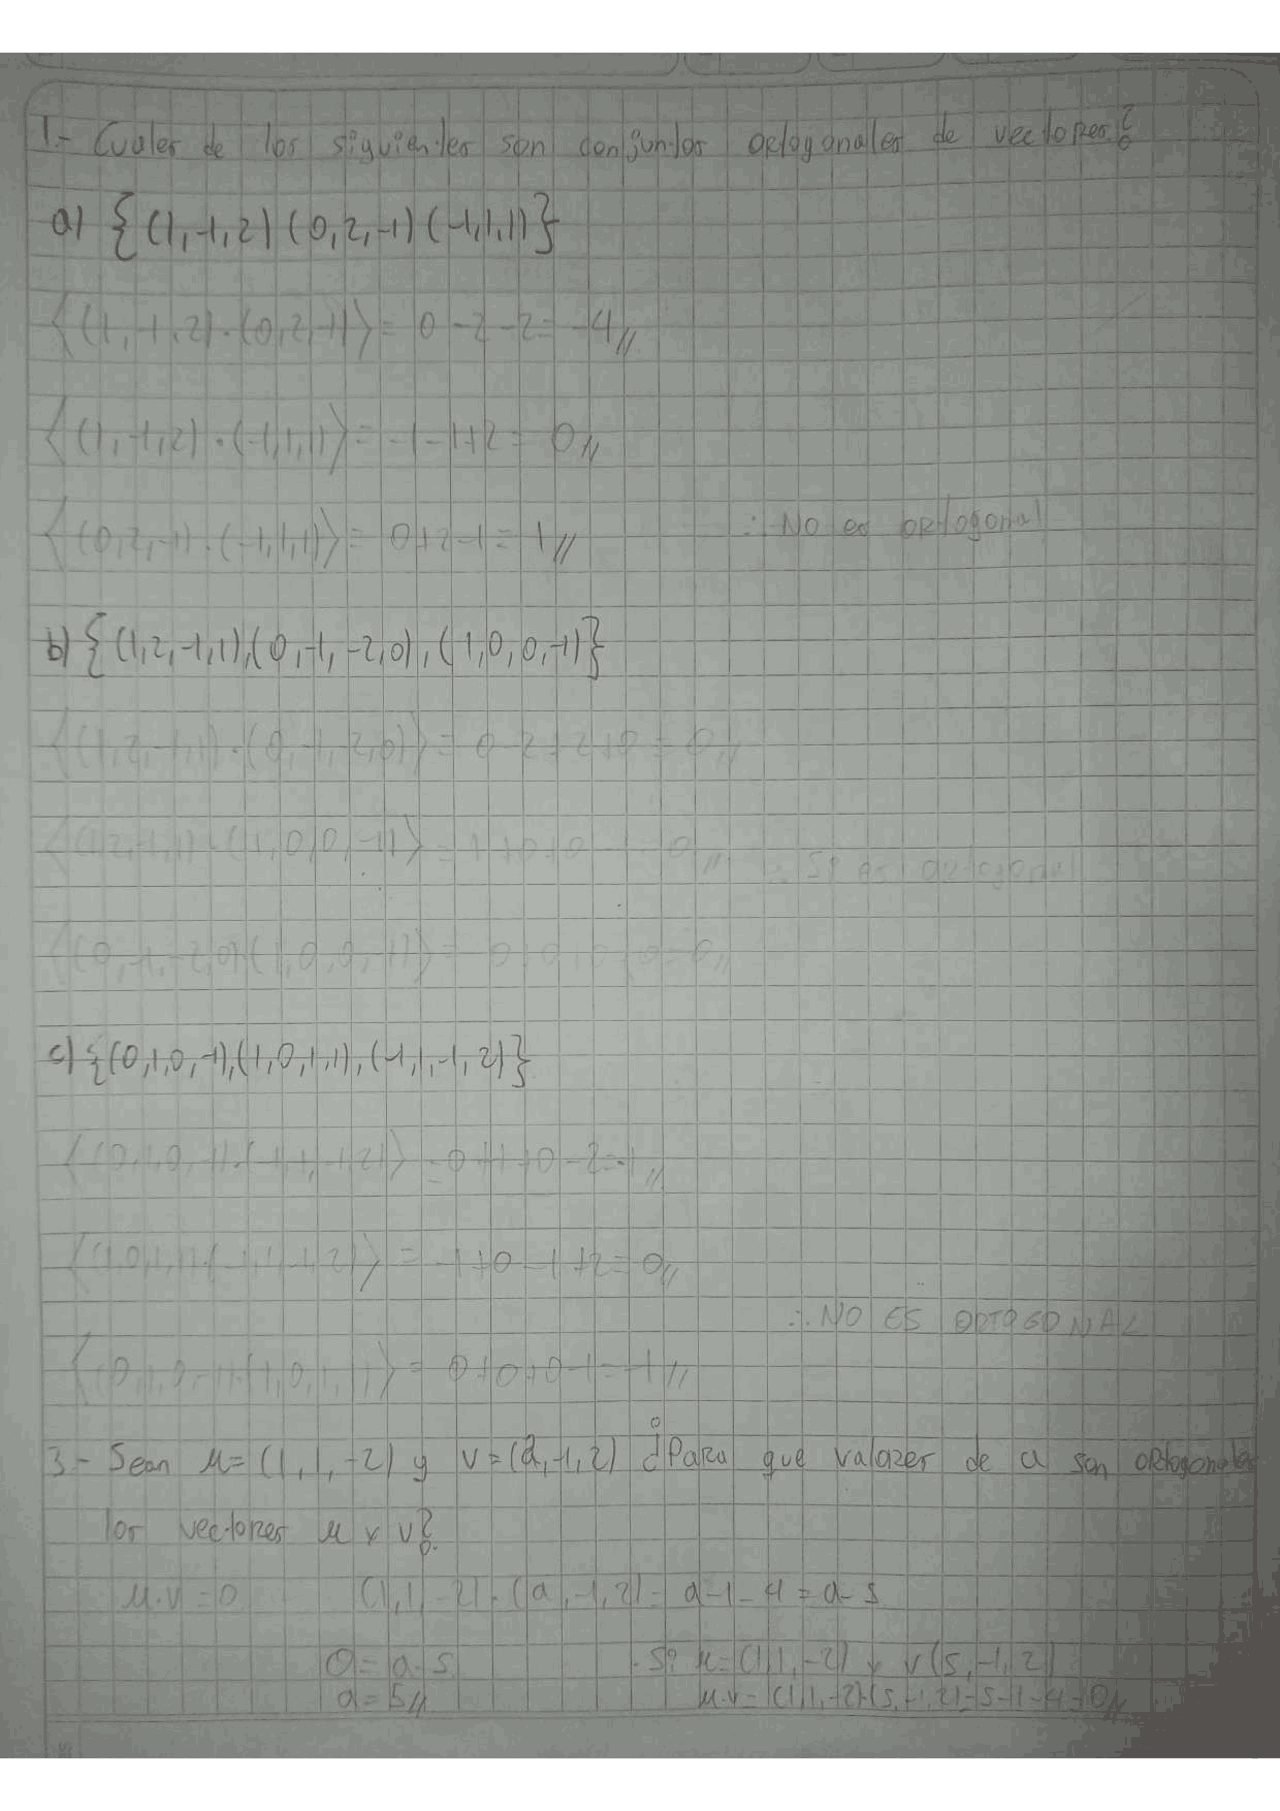 1.- Cuales de los siguientes son conjuntos ortogonales de vectores?
a) {(1,-1,2) (0,2,-1) (-1,1,1)}
⟨(1,-1,2)·(0,2,-1)⟩= 0-2-2= -4//
⟨(1,-1,2)·(-1,1,1)⟩= -1-1+2 = 0//
⟨(0,2,-1)·(-1,1,1)⟩= 0+2-1=1//
∴ No es ortogonal
b) {(1,2,-1,1),(0,-1,-2,0),(1,0,0,-1)}
⟨(1,2,-1,1)·(0,-1,-2,0)⟩ = 0-2+2+0 = 0//
⟨(1,2,-1,1)·(1,0,0,-1)⟩ = 1+0+0-1=0//
∴ Si es ortogonal
⟨(0,-1,-2,0)(1,0,0,-1)⟩ = 0+0+0+0=0//
c) {(0,1,0,-1),(1,0,1,1),(-1,1,-1,2)}
⟨(0,1,0,-1)·(-1,1,-1,2)⟩=0+1+0-2=-1//
⟨(1,0,1,1)(-1,1,-1,2)⟩ = -1+0-1+2=0//
∴ NO ES ORTOGONAL
⟨(0,1,0,-1)·(1,0,1,1)⟩= 0+0+0-1=-1//
3.- Sean u=(1,1,-2) y v=(a,-1,2) ¿Para que valores de a son ortogonales
los vectores u y v?
u.v=0 (1,1,-2)·(a,-1,2)= a-1-4=a-5
0=a-5 Si u=(1,1,-2) y v(5,-1,2)
a=5// u.v=(1,1,-2)·(5,-1,2)=5-1-4=0//